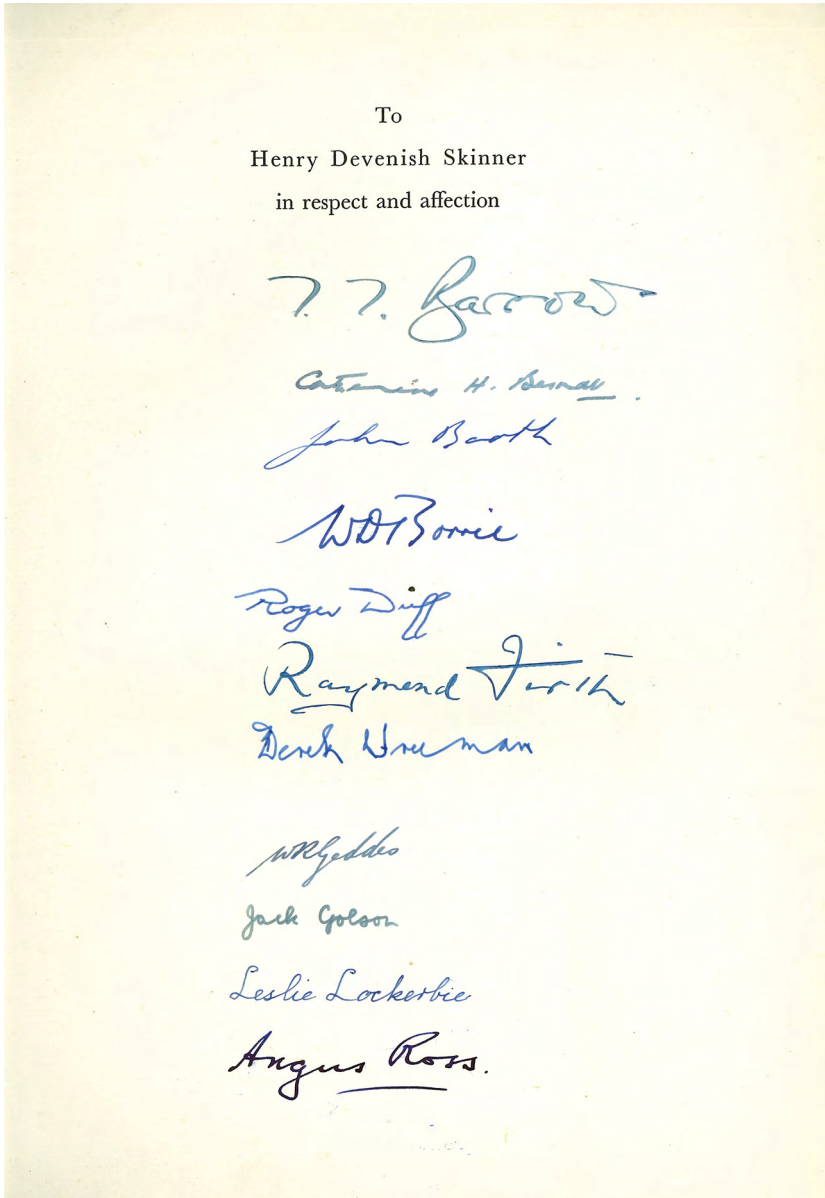 To
Henry Devenish Skinner
in respect and affection
T. T. Barrow
Catherine H. Berndt.
John Booth
WD Borrie
Roger Duff
Raymond Firth
Derek Freeman
WR Geddes
Jack Golson
Leslie Lockerbie
Angus Ross.